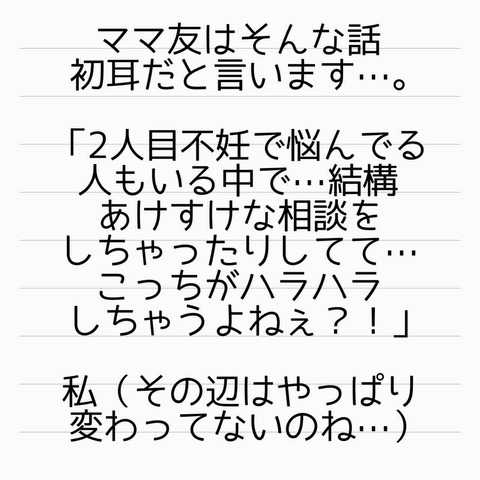 ママ友はそんな話
初耳だと言います…。
「2人目不妊で悩んでる
人もいる中で…結構
あけすけな相談を
しちゃったりしてて…
こっちがハラハラ
しちゃうよねぇ？！」
私（その辺はやっぱり
変わってないのね…）